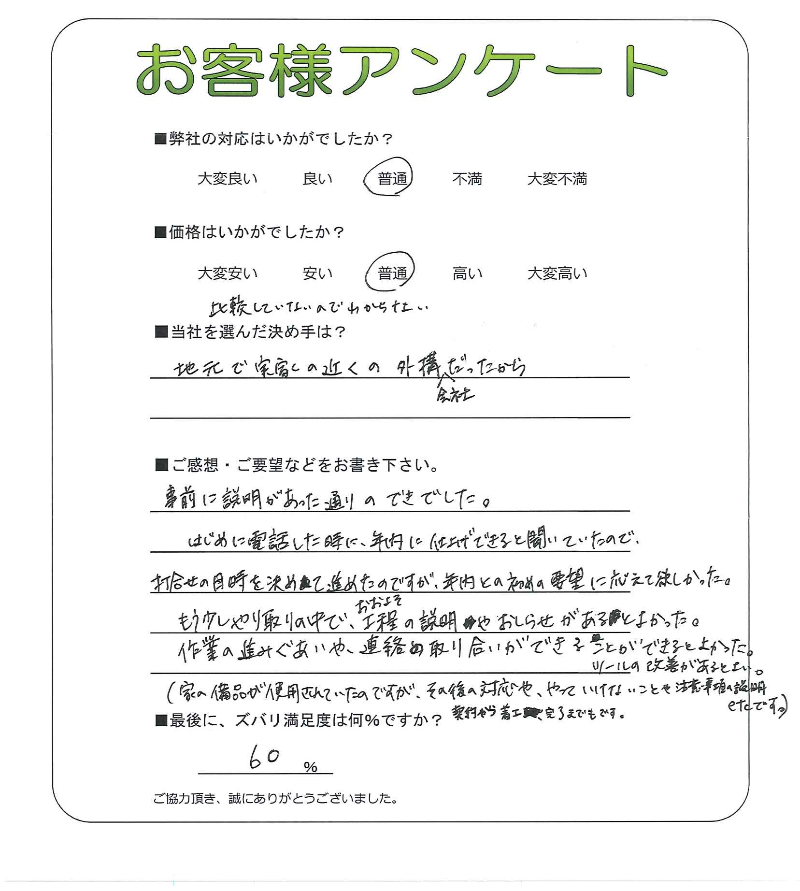 お客様アンケート
■弊社の対応はいかがでしたか？
大変良い 良い 普通 不満 大変不満
■価格はいかがでしたか？
大変安い 安い 普通 高い 大変高い
比較していないのでわからない
■当社を選んだ決め手は？
地元で実家の近くの外構会社だったから
■ご感想・ご要望などをお書き下さい。
事前に説明があった通りのできでした。
はじめに電話した時に、年内に仕上げできると聞いていたので、
打合せの日時を決めて進めたのですが、年内との初めの要望に応えて欲しかった。
もう少しやり取りの中で、おおよそ工程の説明やおしらせがあるとよかった。
作業の進みぐあいや、連絡の取り合いができることができるとよかった。
ツールの改善があるとよい。
（家の備品が使用されていたのですが、その後の対応や、やっていけないことや注意事項の説明
etcです。）
契約から着工、完了までもです。
■最後に、ズバリ満足度は何%ですか？
60 %
ご協力頂き、誠にありがとうございました。